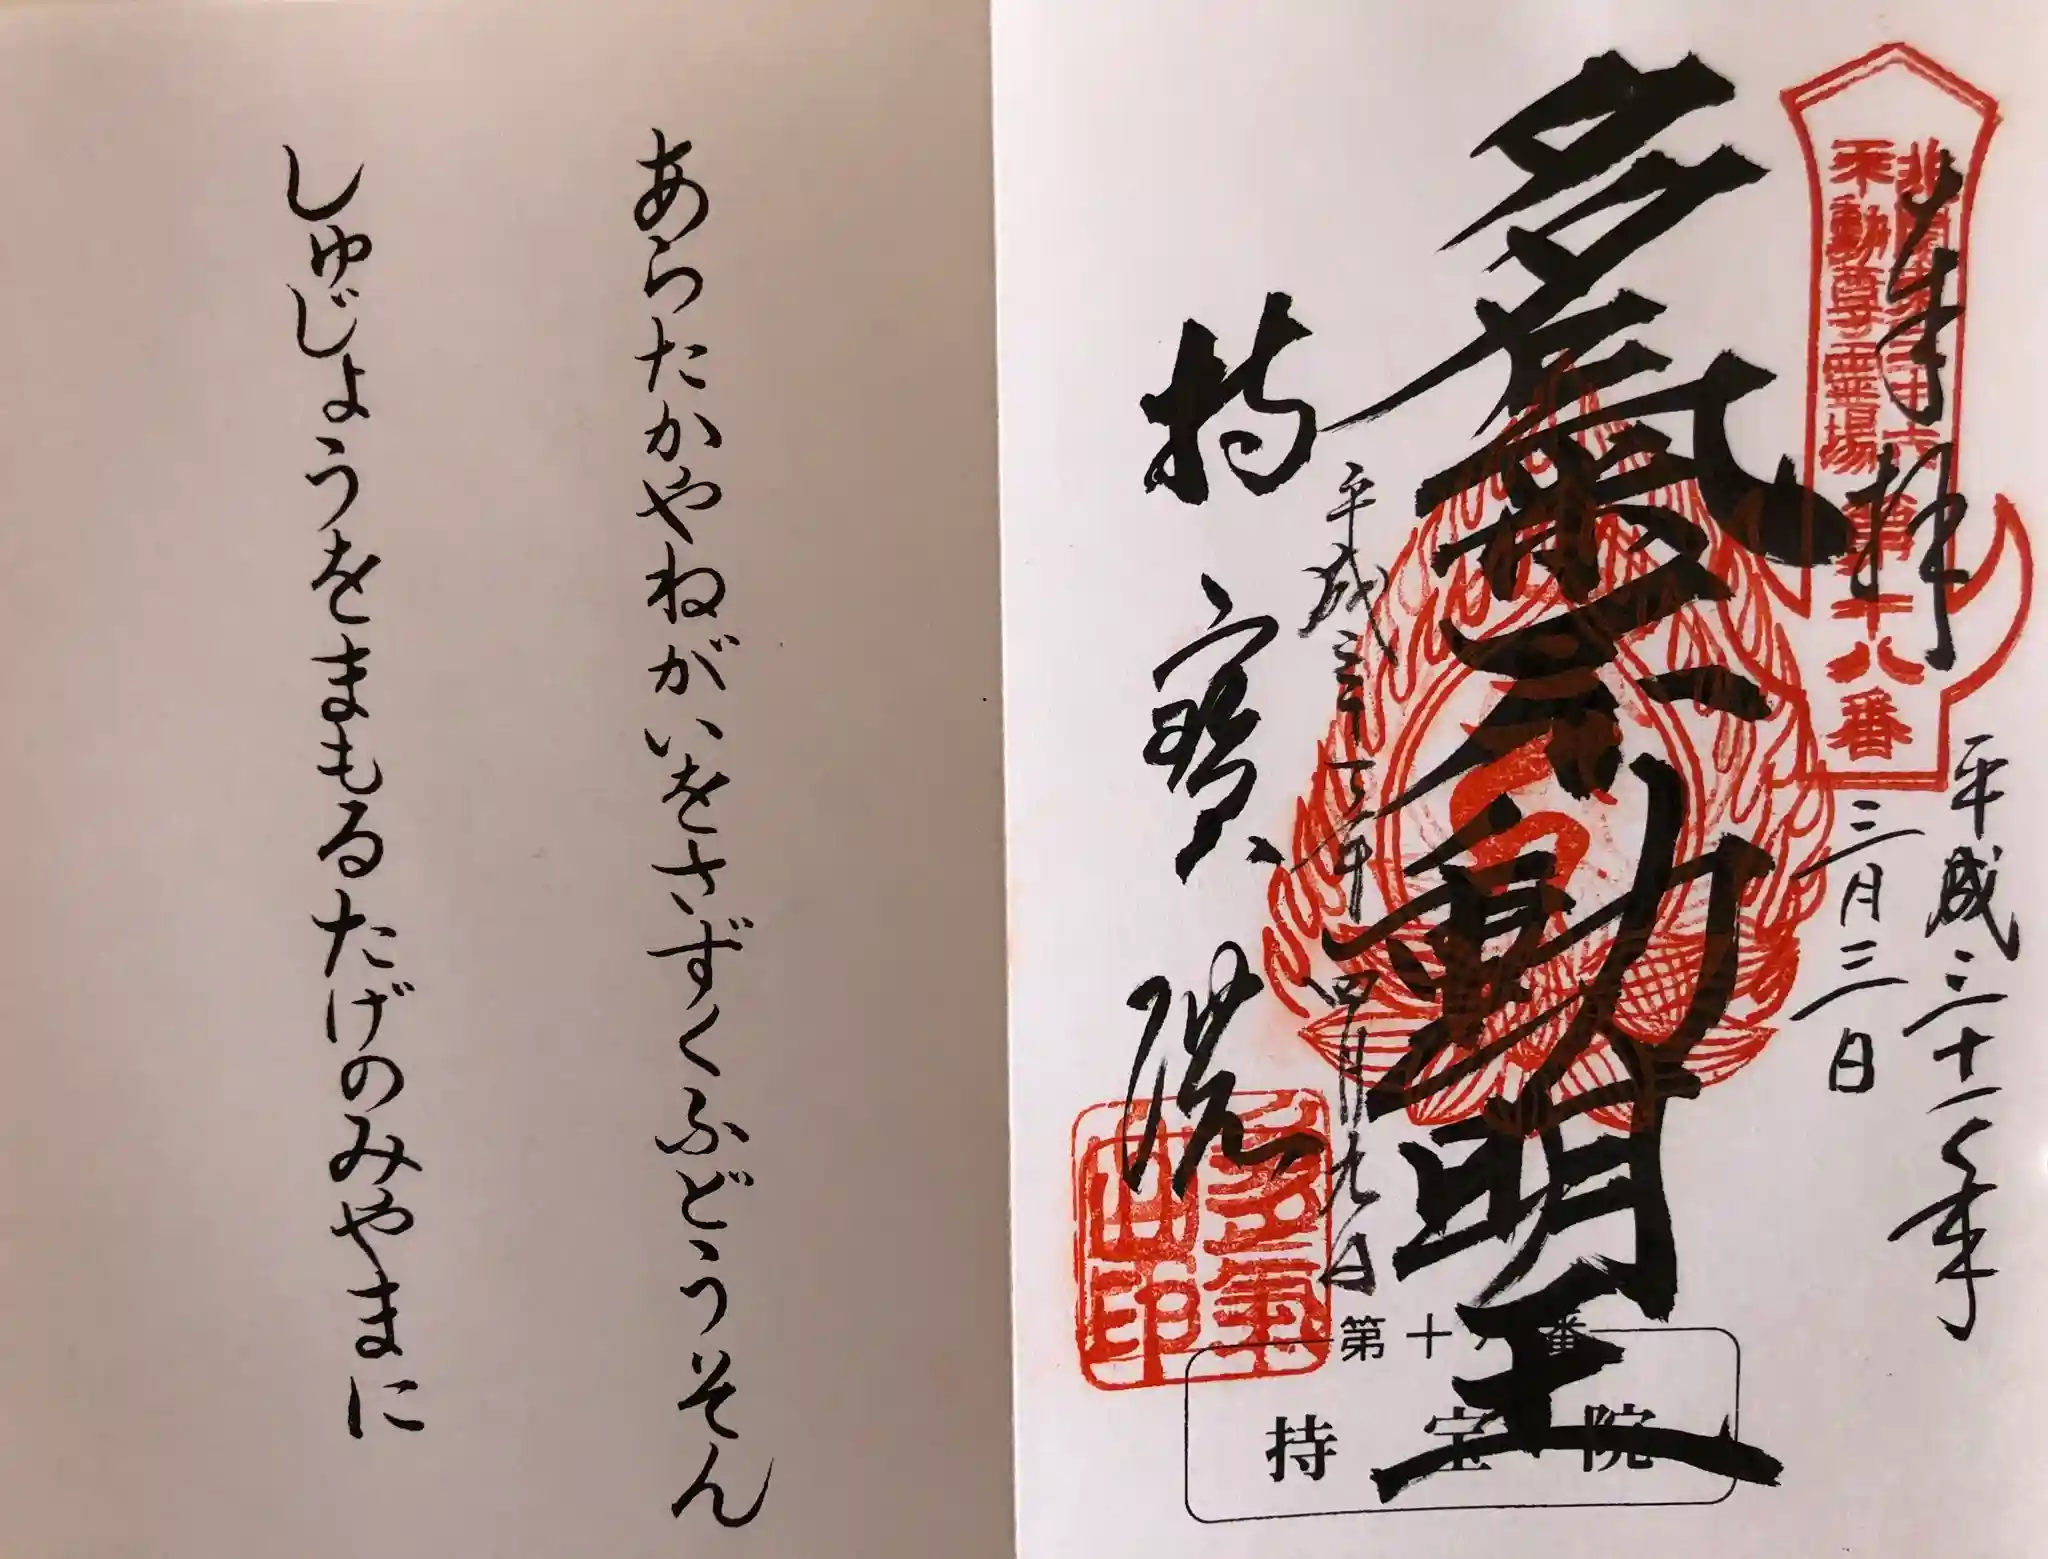 奉拝
平成三十一年
三月三日
北関東三十六
不動尊霊場
第十八番
多氣不動明王
平成三十一年四月九日
持寳院
多氣
山印
第十八番
持宝院
あらたかやねがいをさずくふどうそん
しゅじょうをまもるたげのみやまに